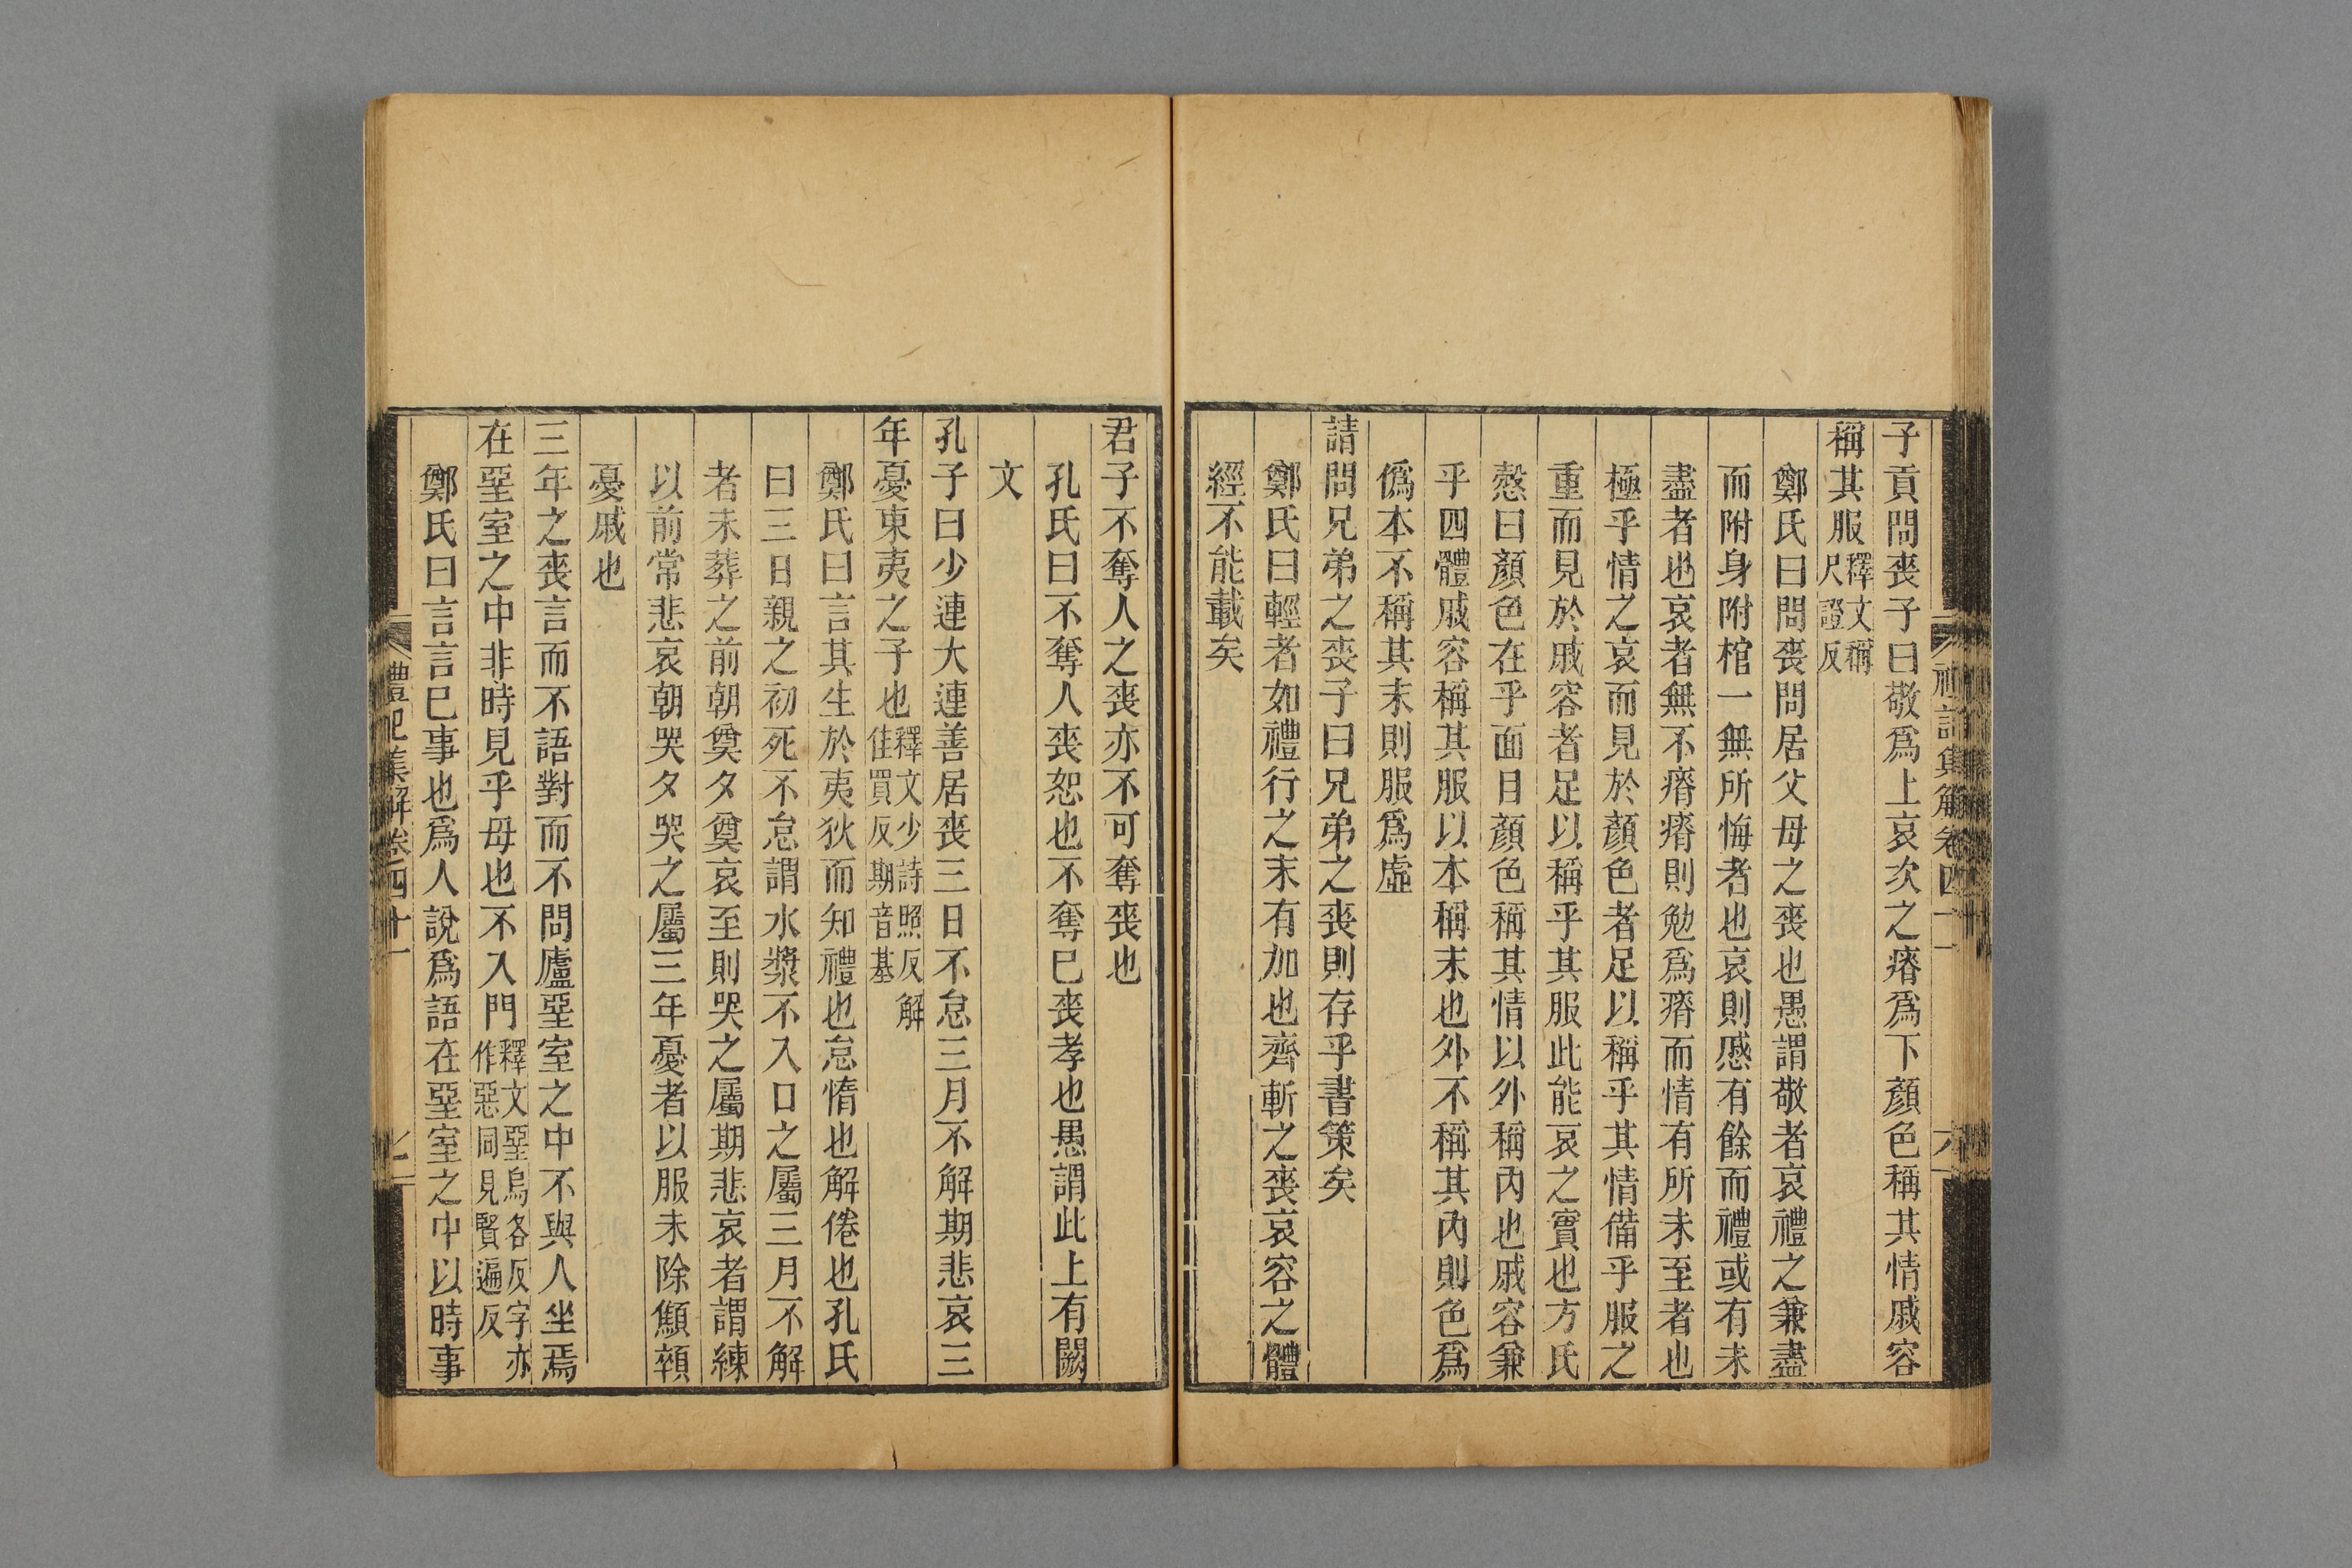 子貢問喪子曰敬爲上哀次之瘠爲下顏色稱其情戚容
稱其服釋文稱尺證反
鄭氏曰問喪問居父母之喪也愚謂敬者哀禮之兼盡
而附身附棺一無所悔者也哀則慼有餘而禮或有未
盡者也哀者無不瘠瘠則勉爲瘠而情有所未至者也
極乎情之哀而見於顏色者足以稱乎其情備乎服之
重而見於戚容者足以稱乎其服此能哀之實也方氏
慤曰顏色在乎面目顏色稱其情以外稱內也戚容兼
乎四體戚容稱其服以本稱末也外不稱其內則色爲
僞本不稱其末則服爲虛
請問兄弟之喪子曰兄弟之喪則存乎書策矣
鄭氏曰輕者如禮行之末有加也齊斬之喪哀容之體
經不能載矣
君子不奪人之喪亦不可奪喪也
孔氏曰不奪人喪恕也不奪已喪孝也愚謂此上有闕
文
孔子曰少連大連善居喪三日不怠三月不解期悲哀三
年憂東夷之子也釋文少詩照反解佳買反期音基
鄭氏曰言其生於夷狄而知禮也怠惰也解倦也孔氏
曰三日親之初死不怠謂水漿不入口之屬三月不解
者未葬之前朝奠夕奠哀至則哭之屬期悲哀者謂練
以前常悲哀朝哭夕哭之屬三年憂者以服未除顦顇
憂戚也
三年之喪言而不語對而不問廬堊室之中不與人坐焉
在堊室之中非時見乎母也不入門釋文堊烏各反字亦作惡同見賢遍反
鄭氏曰言言已事也爲人說爲語在堊室之中以時事
禮記集解卷四十一
七